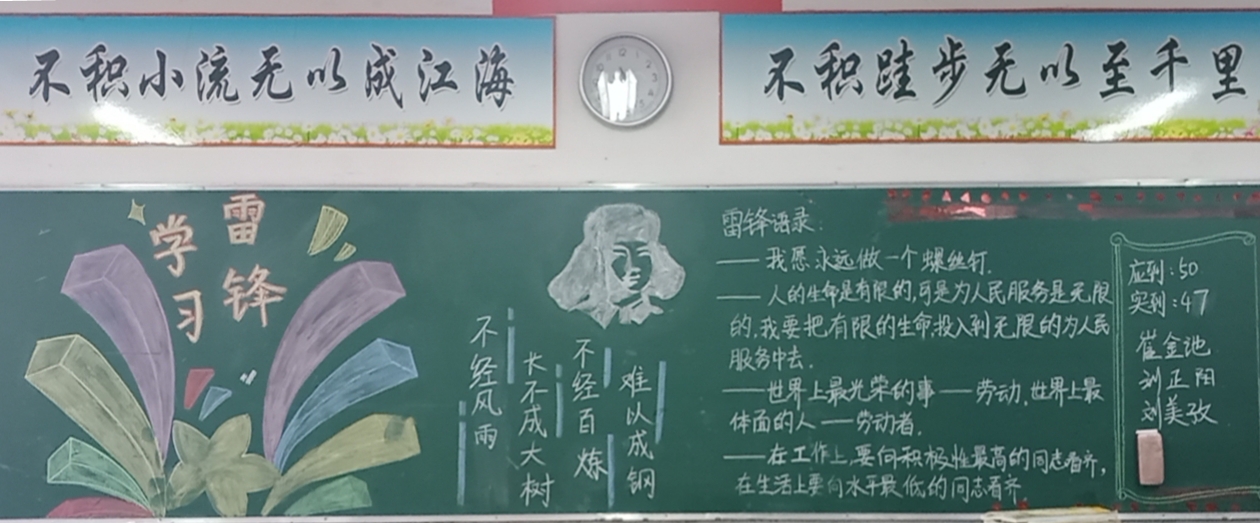 不积小流无以成江海
不积跬步无以至千里
学习
雷锋
不经风雨
长不成大树
不经百炼
难以成钢
雷锋语录:
——我愿永远做一个螺丝钉.
——人的生命是有限的,可是为人民服务是无限
的,我要把有限的生命,投入到无限的为人民
服务中去.
——世界上最光荣的事——劳动,世界上最
体面的人——劳动者.
——在工作上,要向积极性最高的同志看齐,
在生活上要向水平最低的同志看齐
应到:50
实到:47
崔金池
刘正阳
刘美孜